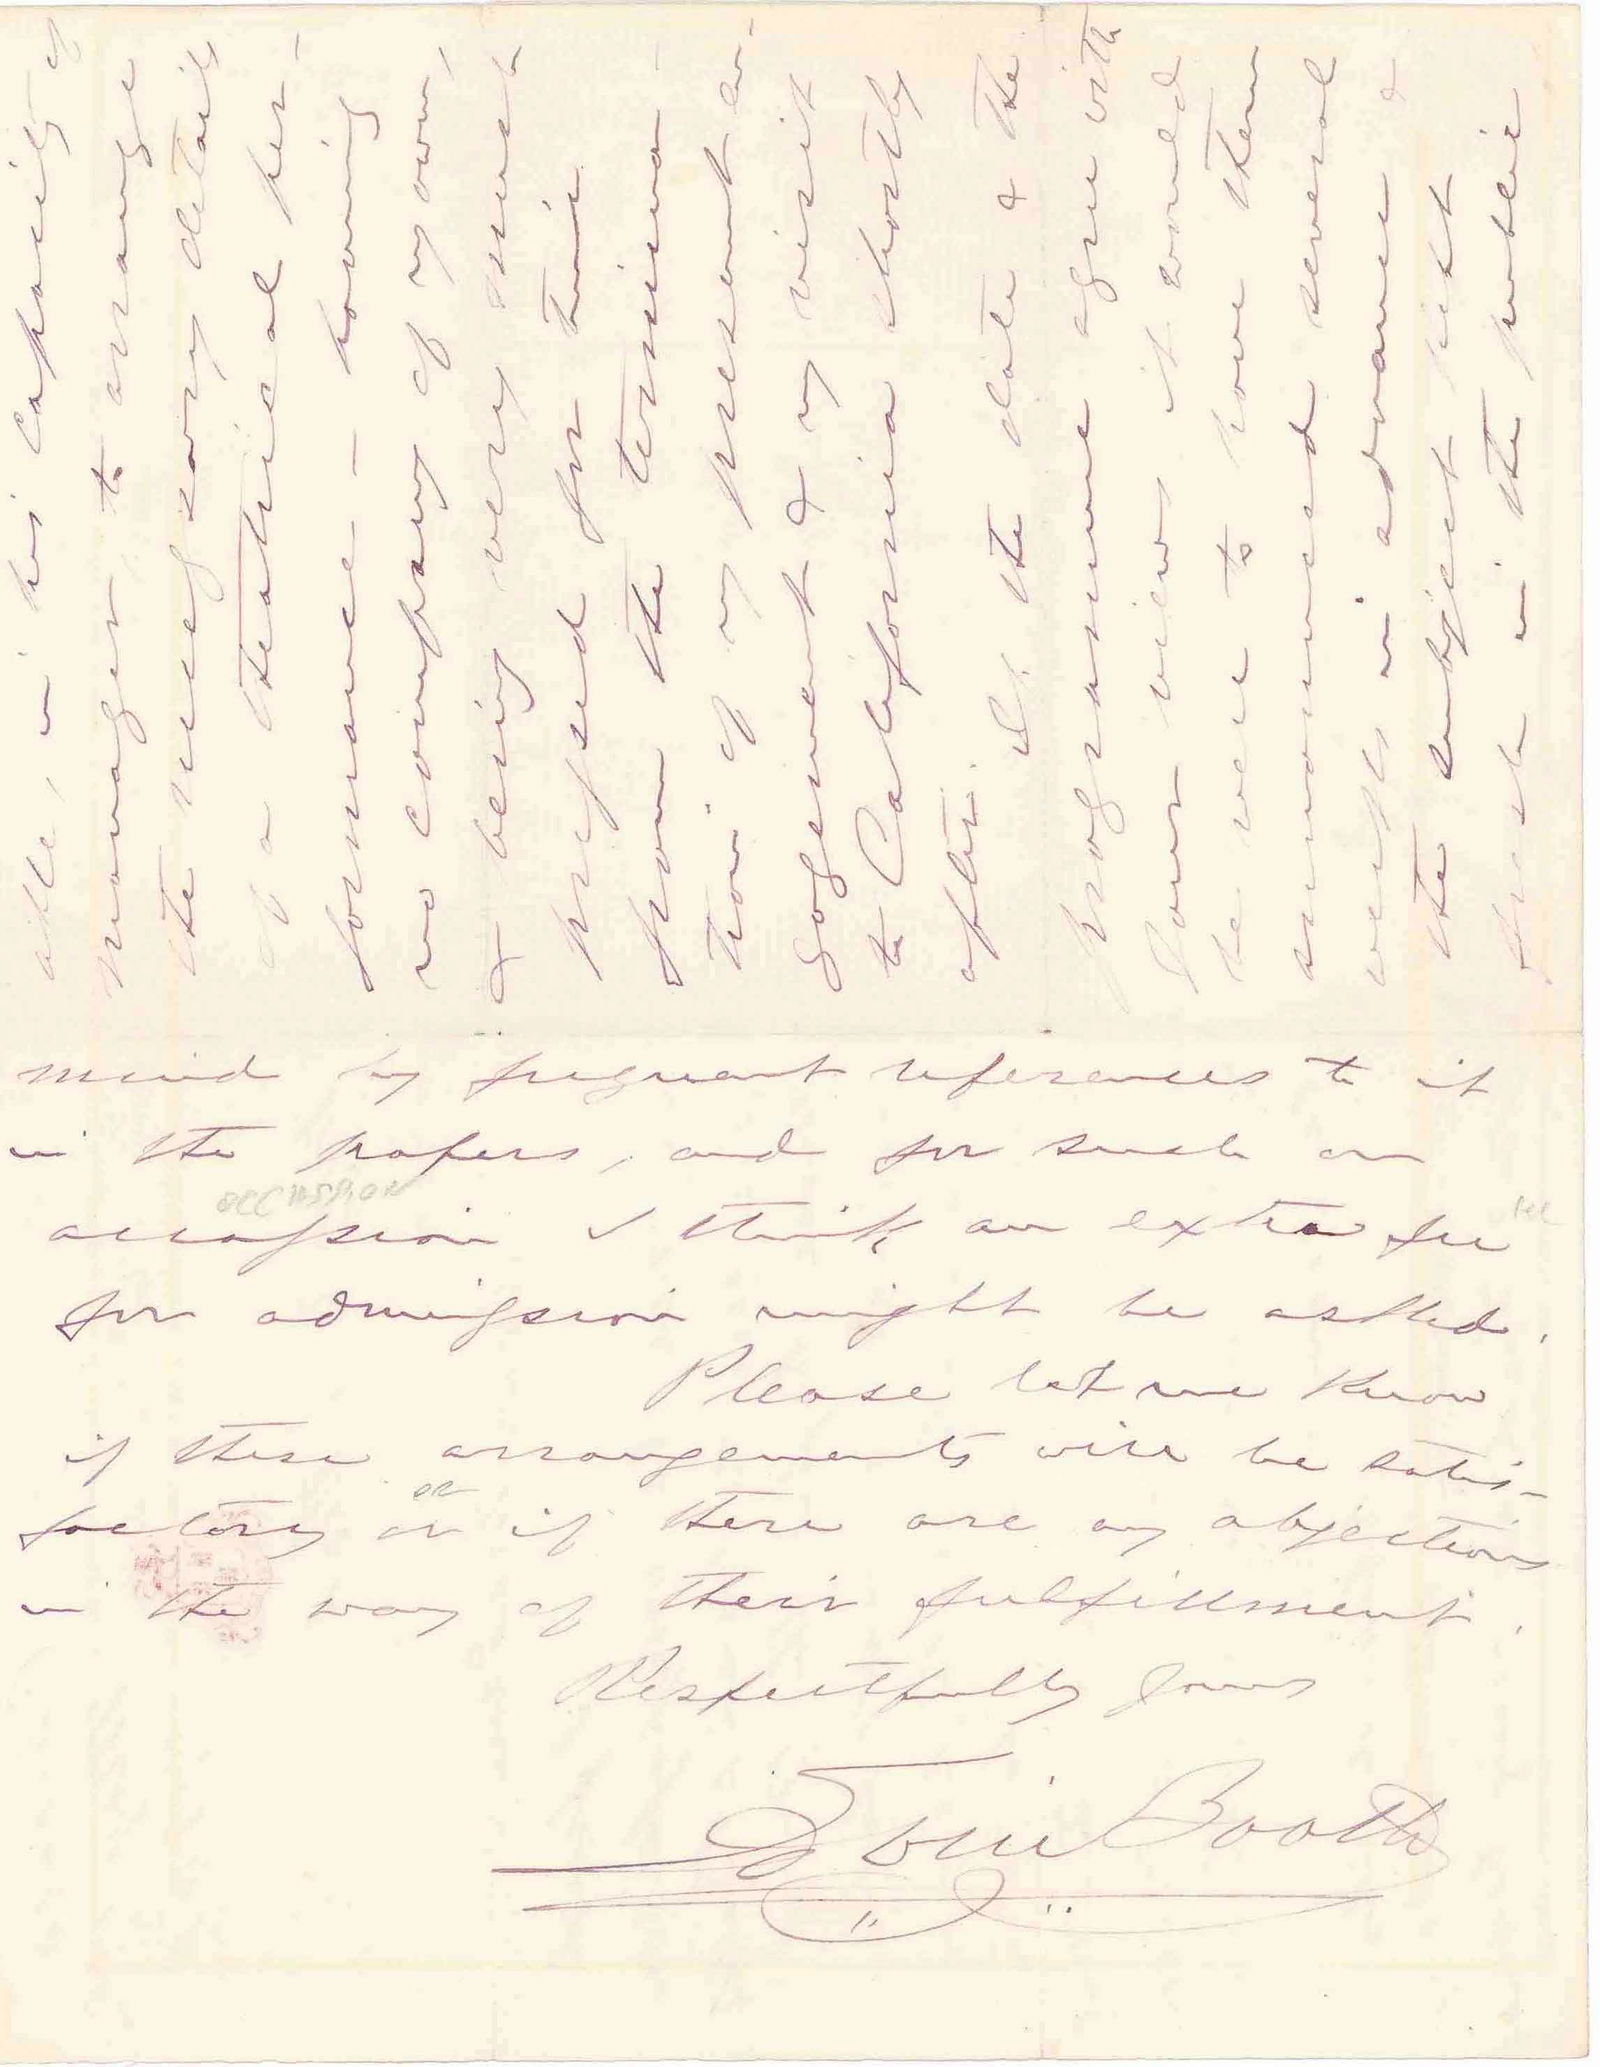 able, in his capacity of
manager, to arrange
the necessary details
of a theatrical per-
formance - having
no company of my own,
& being very much
pressed for time
from the termina-
tion of my present en-
gagement & my visit
to California shortly
after. If the date & the
programme agree with
your views it would
be well to have them
announced several
weeks in advance &
the subject kept
fresh in the public
mind by frequent references to it
in the papers, and for such an
OCCASSION
occassion I think an extra fee
for admission might be asked.
Please let me know
if these arrangements will be satis-
OR
factory or if there are any objections
in the way of their fulfillment.
Respectfully Yours
Edwin Booth